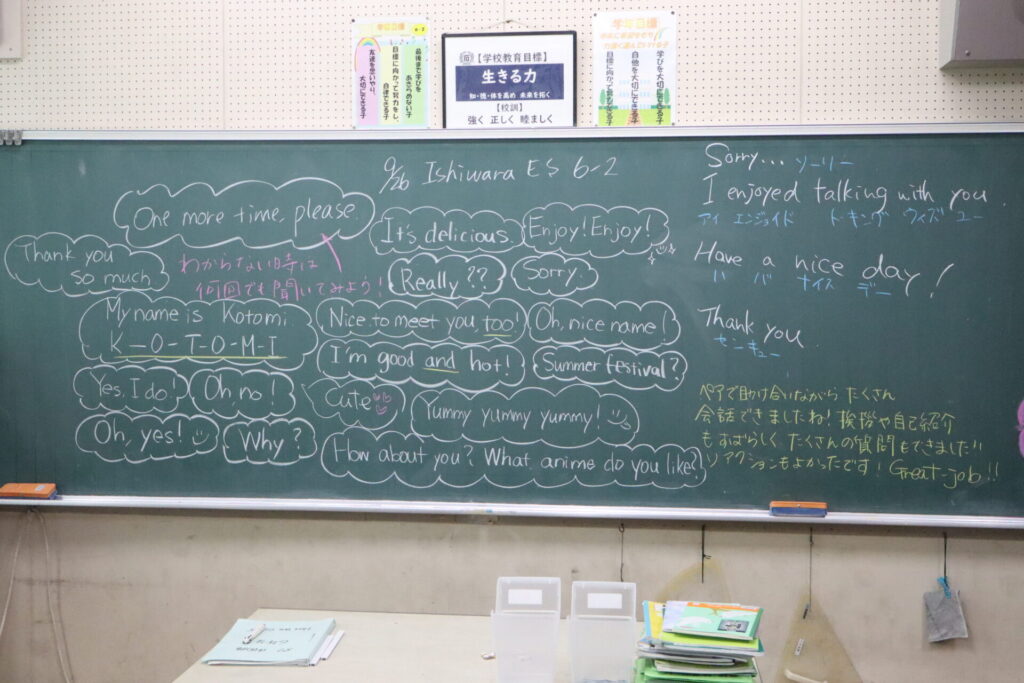 学年目標
6-2
最後まで学びを
あきらめない子
目標に向かって努力をし、
自律できる子
友達を思いやり、
大切にできる子
【学校教育目標】
生きる力
知・徳・体を高め 未来を拓く
【校訓】
強く 正しく 睦ましく
学年目標
学びを大切にできる子
自他を大切にできる子
目標に向かって努力できる子
9/26 Ishiwara ES 6-2
One more time, please.
Thank you
so much.
わからない時は
何回でも聞いてみよう!
It's delicious.
Enjoy! Enjoy!
Really??
Sorry.
My name is Kotomi.
K-O-T-O-M-I
Nice to meet you too!
Oh, nice name!
I'm good and hot!
Summer festival?
Yes, I do!
Oh, no!
Cute
Yummy yummy yummy!
Oh, yes!
Why?
How about you? What anime do you like?
Sorry... ソーリー
I enjoyed talking with you.
アイ エンジョイド トーキング ウィズ ユー
Have a nice day!
ハバ ナイス デー
Thank you.
センキュー
ペアで助け合いながら たくさん
会話できましたね! 挨拶や自己紹介
もすばらしく たくさんの質問もできました!!
リアクションもよかったです! Great job!!